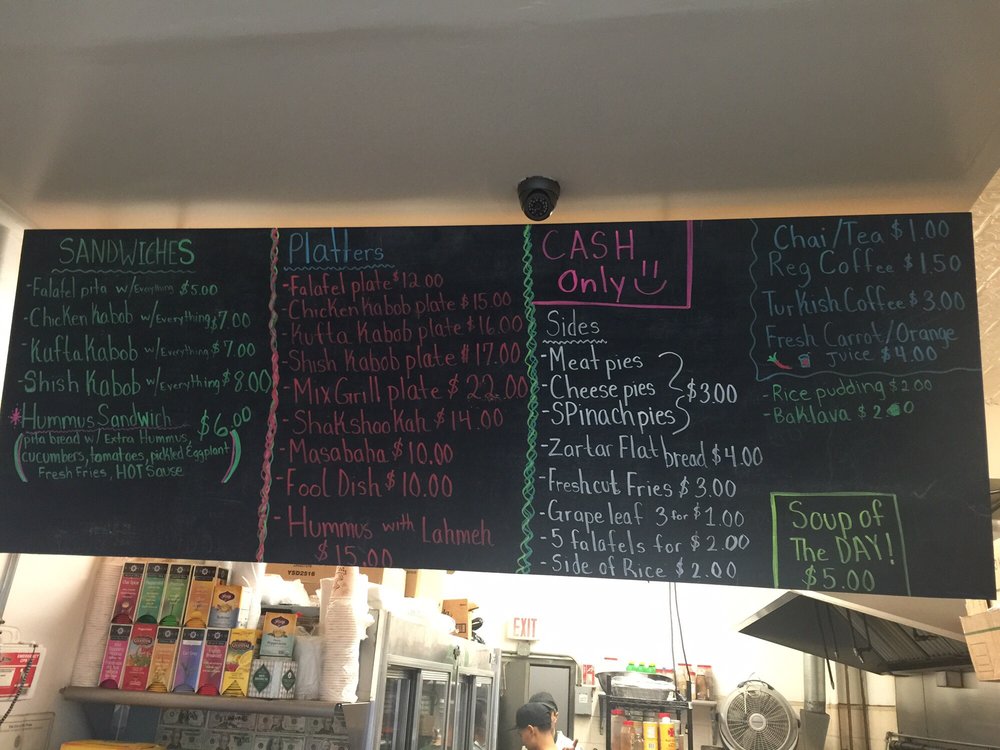 SANDWICHES
-Falafel pita w/Everything $5.00
-Chicken Kabob w/Everything $7.00
-Kufta Kabob w/Everything $7.00
-Shish Kabob w/Everything $8.00
*Hummus Sandwich $6.00
(pita bread w/ Extra Hummus,
cucumbers, tomatoes, pickled Eggplant
Fresh Fries, HOT Sause)
Platters
-Falafel plate $12.00
-Chicken Kabob plate $15.00
-Kufta Kabob plate $16.00
-Shish Kabob plate $17.00
-Mix Grill plate $22.00
-Shakshoo Kah $14.00
-Masabaha $10.00
-Fool Dish $10.00
-Hummus with Lahmeh
$15.00
CASH
Only
Sides
-Meat pies
-Cheese pies
-SPinach pies
$3.00
-Zartar Flat bread $4.00
-Freshcut Fries $3.00
-Grape leaf 3 for $1.00
-5 falafels for $2.00
-Side of Rice $2.00
Chai/Tea $1.00
Reg Coffee $1.50
Turkish Coffee $3.00
Fresh Carrot/Orange
Juice $4.00
-Rice pudding $2.00
-Baklava $2.00
Soup of
The DAY!
$5.00
YSD2516
EXIT